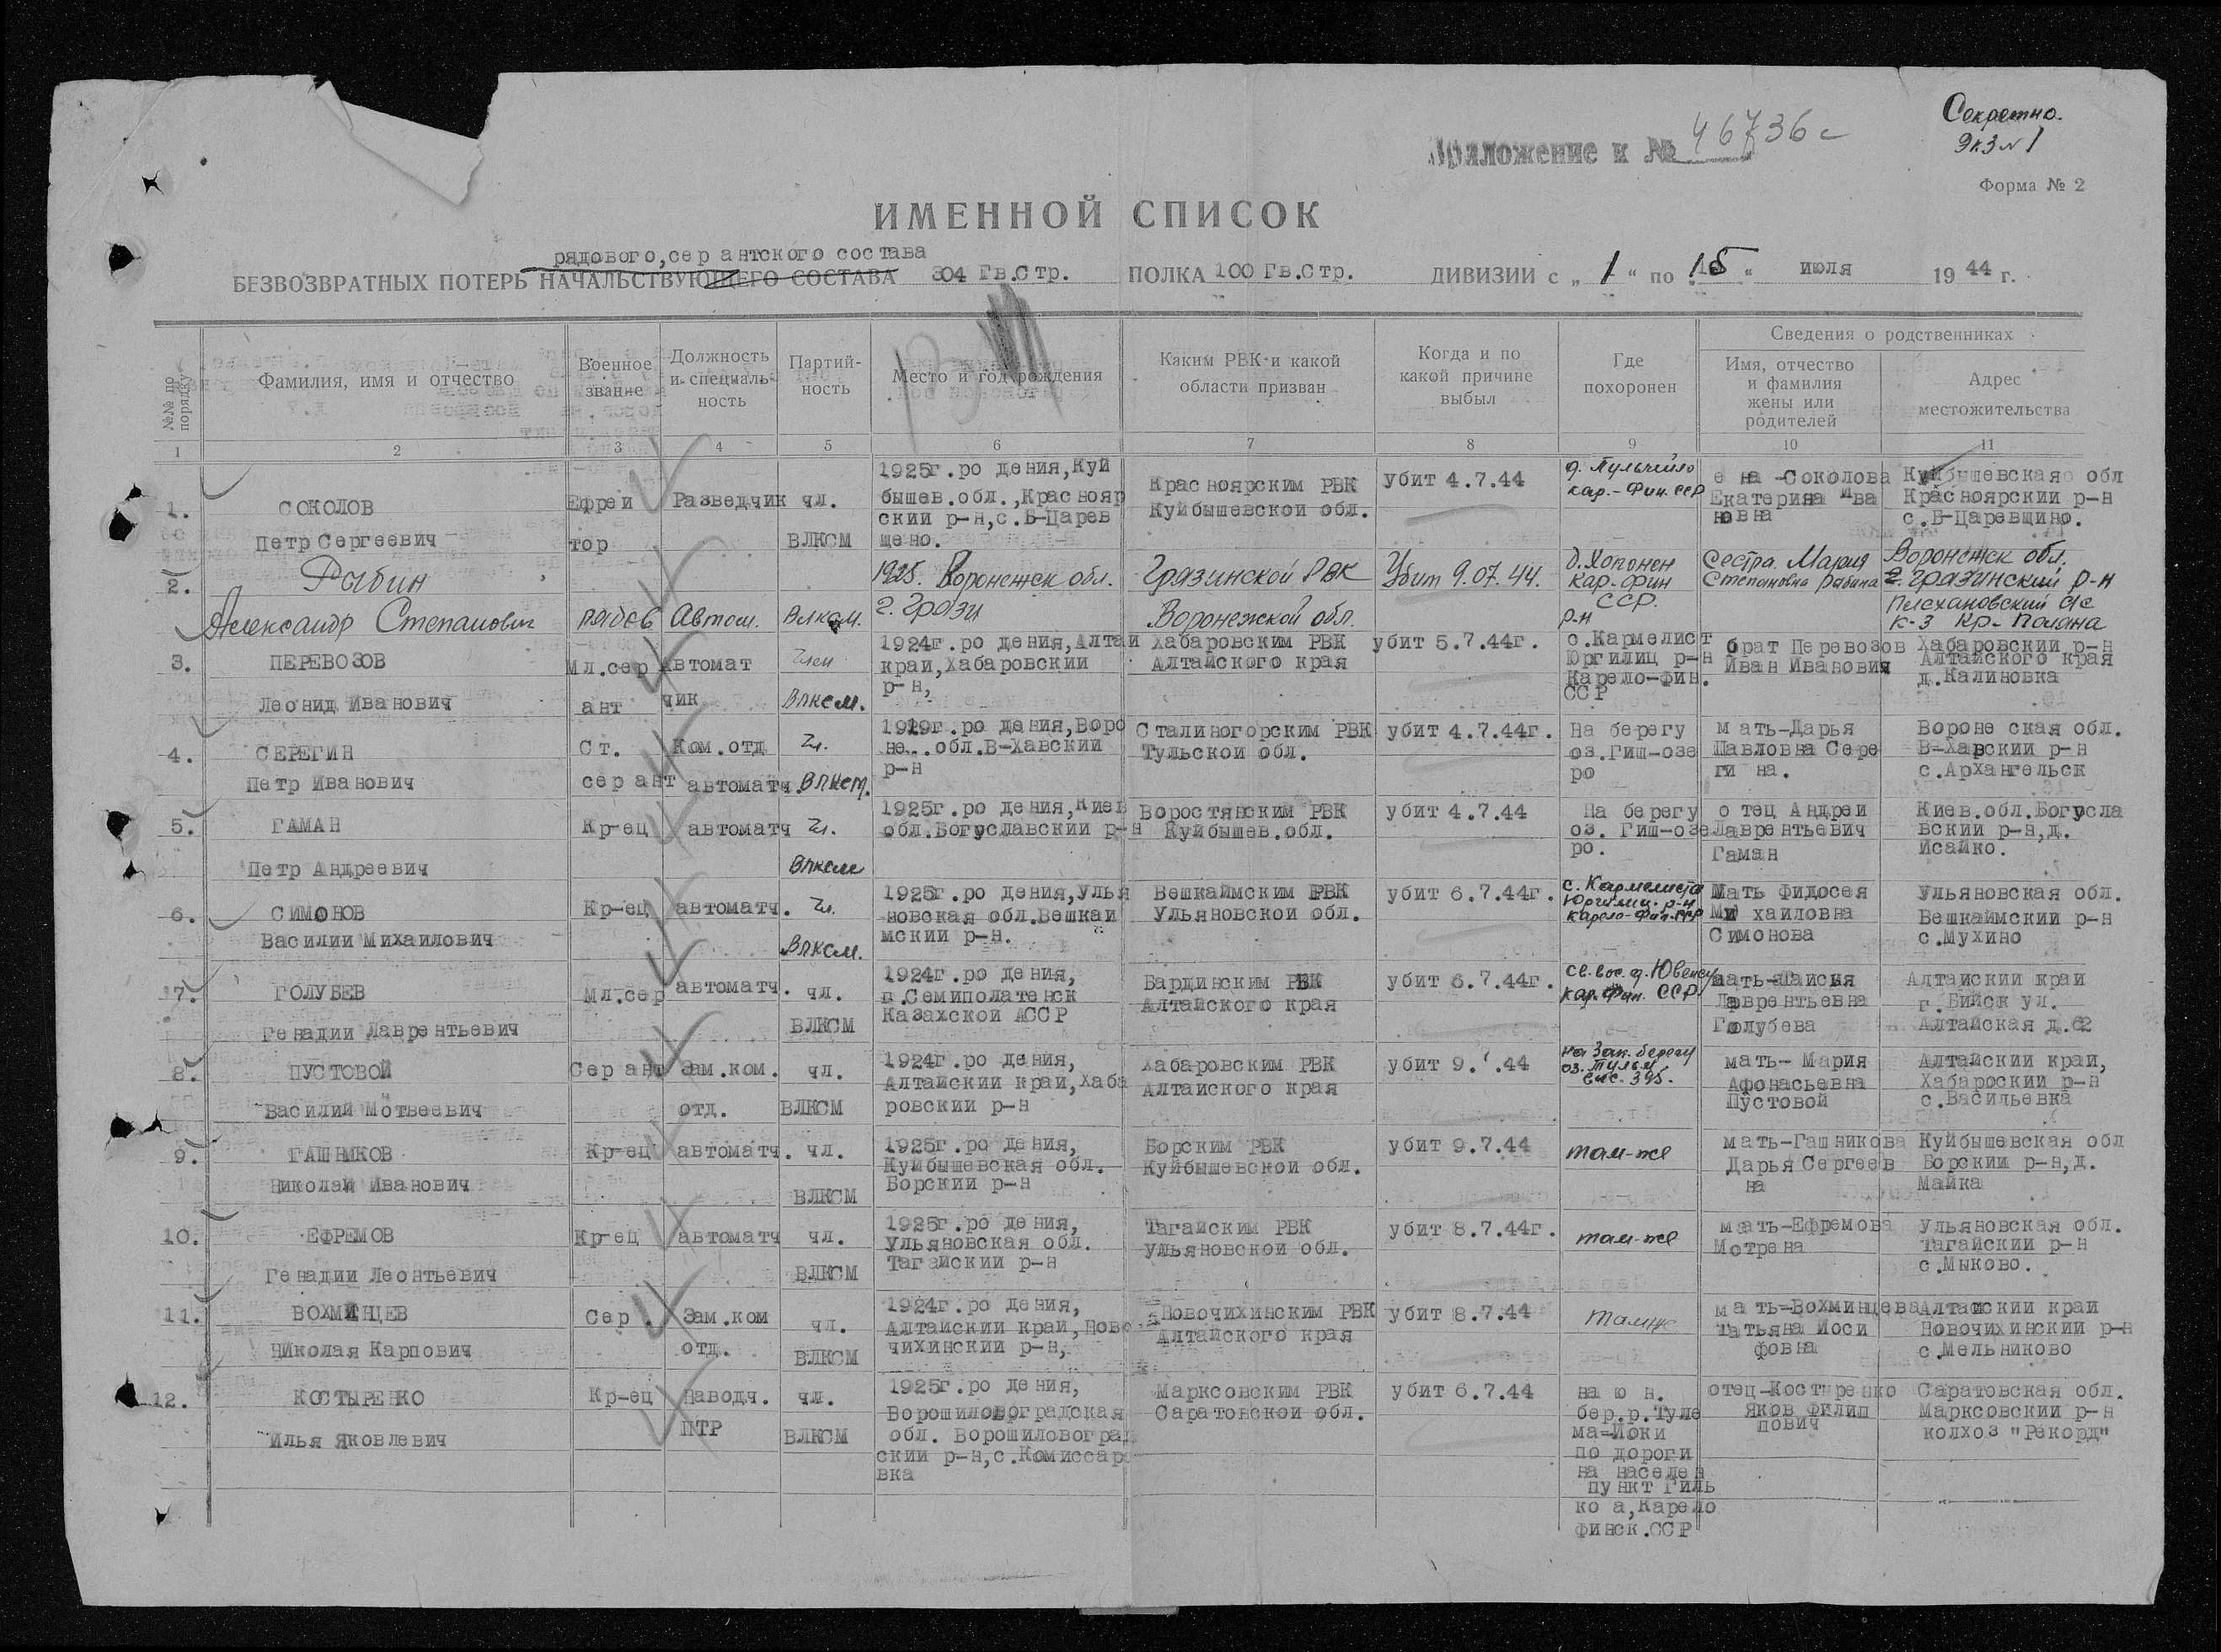 Секретно.
Экз № 1
Приложение к № 46736с
Форма № 2
ИМЕННОЙ СПИСОК
рядового,сер антского состава
БЕЗВОЗВРАТНЫХ ПОТЕРЬ НАЧАЛЬСТВУЮЩЕГО СОСТАВА 304 Гв.Стр. ПОЛКА 100 Гв.Стр. ДИВИЗИИ с „ 1 “ по 15 “ июля 19 44 г.
№№ по порядку
Фамилия, имя и отчество
Военное звание
Должность и специаль- ность
Партий- ность
Место и год рождения
Каким РВК и какой области призван
Когда и по какой причине выбыл
Где похоронен
Сведения о родственниках
Имя, отчество и фамилия жены или родителей
Адрес местожительства
1 2 3 4 5 6 7 8 9 10 11
1. СОКОЛОВ Петр Сергеевич
Ефреи тор
Разведчик
чл. ВЛКСМ
1925г.ро дения,Куй бышев.обл.,Краснояр ский р-н,с.Б-Царев щено.
Красноярским РВК Куйбышевской обл.
убит 4.7.44
Кар.-Фин.ССР
е на -Соколова Екатерина Ива новна
Куйбышевская обл Красноярский р-н с.Б-Царевщино.
2. Рябин Александр Степанович
рядов
Автом.
Влксм.
1925. Воронежск обл. г. Грязи
Грязинской РВК Воронежской обл.
Убит 9.07.44.
д.Хопонен Кар-Фин ССР. р-н
Сестра Мария Степановна Рябина
Воронежск обл. г. Грязинский р-н Плехановский с/с к-з Кр-Поляна
3. ПЕРЕВОЗОВ Леонид Иванович
Мл.сер ант
Автомат чик
Член Влксм.
1924г.ро дения,Алтаи край,Хабаровский р-н,
Хабаровским РВК Алтайского края
убит 5.7.44г.
с.Кармелист Юргилиц р-н Карело-фин. ССР
брат Перевозов Иван Иванович
Хабаровский р-н Алтайского края д.Калиновка
4. СЕРЕГИН Петр Иванович
Ст. сер ант
Ком.отд автоматч.
Чл. Влксм.
1919г.ро дения,Воро не..обл.В-Хавский р-н
Сталиногорским РВК Тульской обл.
убит 4.7.44г.
На берегу оз.Гиш-озе ро
мать-Дарья Павловна Сере ги на.
Вороне ская обл. В-Хавский р-н с.Архангельск
5. ГАМАН Петр Андреевич
Кр-ец
автоматч
Чл. Влксм
1925г.ро дения,Киев обл.Богуславский р-н
Воростянским РВК Куйбышев.обл.
убит 4.7.44
На берегу оз. Гиш-озе ро.
отец Андреи Лаврентьевич Гаман
Киев.обл.Богусла вский р-н,д. Исайко.
6. СИМОНОВ Василии Михаилович
Кр-ец
автоматч.
Чл. Влксм.
1925г.ро дения,Улья новская обл.Вешкаи мский р-н.
Вешкаймским РВК Ульяновской обл.
убит 6.7.44г.
с. Кармелиста Юргилиц. р-н Карело-Фин-ССР
Мать Фидосея Ми хаиловна Симонова
Ульяновская обл. Вешкаймский р-н с.Мухино
7. ГОЛУБЕВ Генадии Лаврентьевич
Мл.сер
автоматч.
чл. ВЛКСМ
1924г.ро дения, г.Семиполатенск Казахской АССР
Бардинским РВК Алтайского края
убит 6.7.44г.
Кар.Фин. ССР
мать-Таисия Лаврентьевна Голубева
Алтайский край г.Бийск ул. Алтайская д.62
8. ПУСТОВОЙ Василий Мотвеевич
Сер ант
Зам.ком. отд.
чл. ВЛКСМ
1924г.ро дения, Алтайский край,Хаба ровский р-н
Хабаровским РВК Алтайского края
убит 9.7.44
на Зап. берегу оз.
мать- Мария Афонасьевна Пустовой
Алтайский край, Хабароский р-н с.Васильевка
9. ГАШНИКОВ Николай Иванович
Кр-ец
автоматч.
чл. ВЛКСМ
1925г.ро дения, Куйбышевская обл. Борский р-н
Борским РВК Куйбышевской обл.
убит 9.7.44
там-же
мать-Гашникова Дарья Сергеев на
Куйбышевская обл Борский р-н,д. Майка
10. ЕФРЕМОВ Генадии Леонтьевич
Кр-ец
автоматч
чл. ВЛКСМ
1925г.ро дения, Ульяновская обл. Тагайский р-н
Тагайским РВК Ульяновской обл.
убит 8.7.44г.
там-же
мать-Ефремова Мотрена
Ульяновская обл. Тагайский р-н с.Мыково.
11. ВОХМИНЦЕВ Николая Карпович
Сер .
Зам.ком отд.
чл. ВЛКСМ
1924г.ро дения, Алтайский край,Ново чихинский р-н,
Новочихинским РВК Алтайского края
убит 8.7.44
Тамже
мать-Вохминцева Татьяна Иоси фовна
Алтайский край Новочихинский р-н с.Мельниково
12. КОСТЫРЕНКО Илья Яковлевич
Кр-ец
Наводч. ПТР
чл. ВЛКСМ
1925г.ро дения, Ворошиловоградская обл. Ворошиловоград ский р-н,с.Комиссаро вка
Марксовским РВК Саратовской обл.
убит 6.7.44
на ю н. бер.р.Туле ма-Йоки по дороги на населен пункт Гиль ко а,Карело финск.ССР
отец-Костыренко Яков Филип пович
Саратовская обл. Марксовский р-н колхоз "Рекорд"